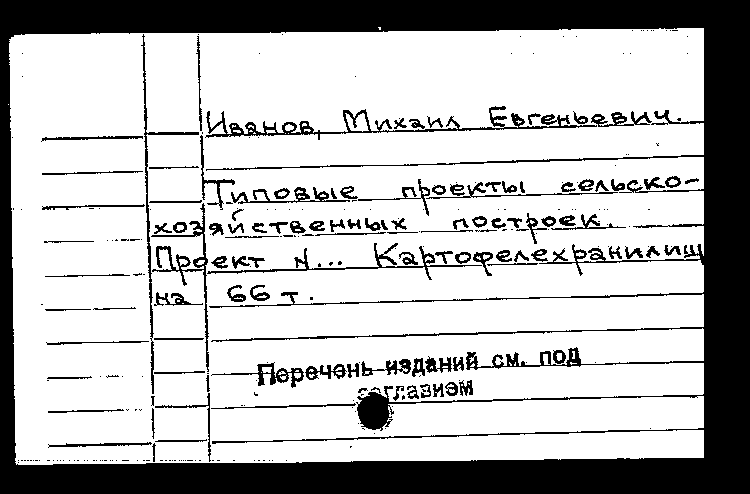 Иванов, Михаил Евгеньевич.
Типовые проекты сельско-
хозяйственных построек.
Проект N... Картофелехранилищ
на 66 т.
Перечень изданий см. под
заглавием